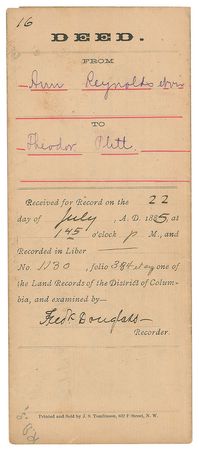 16
DEED.
FROM
Ann Reynolds et vir
TO
Theodor Plitt.
Received for Record on the 22
day of July, A. D. 1885 at
1 45 o'clock P M., and
Recorded in Liber
No. 1130, folio 384 et seq one of
the Land Records of the District of Colum-
bia, and examined by—
Fredk Douglass
Recorder.
Printed and Sold by J. S. Tomlinson, 632 F Street, N. W.